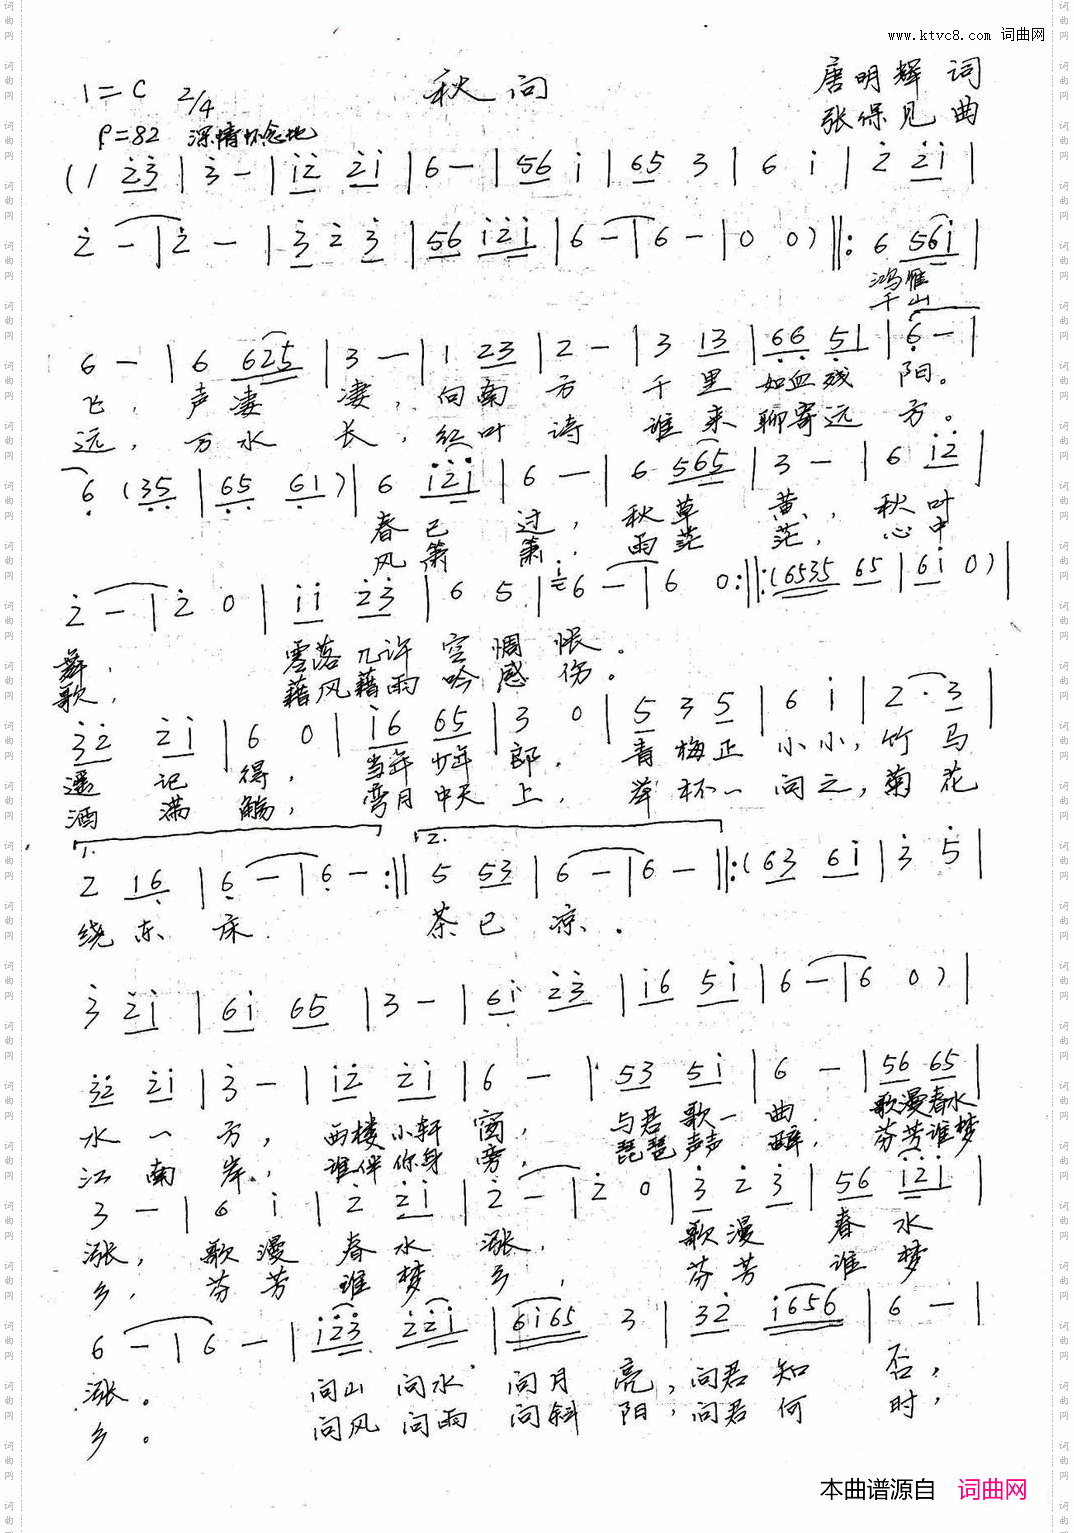 www.ktvc8.com 词曲网
1=C 2/4 秋问 唐明辉 词
张保见 曲
♩=82 深情怀念地
(1 2̇3̇ | 3̇ - | i2̇ 2̇i | 6 - | 56 i | 65 3 | 6 i | 2̇ 2̇i |
2̇ - | 2̇ - | 3̇ 2̇ 3̇ | 56 i2̇i | 6 - | 6 - | 0 0) ‖: 6 56i |
鸿雁
千山
6 - | 6 625 | 3 - | 1 23 | 2 - | 3 13 | 66 51 | 6 - |
飞, 声凄 凄, 向南 方 千 里 如血残 阳。
远, 万水 长, 红叶 诗 谁 来 聊寄远 方。
6 (35 | 65 61) | 6 i2̇i | 6 - | 6 565 | 3 - | 6 i2̇ |
春已 过, 秋草 黄, 秋叶
风萧 萧, 雨茫 茫, 心中
2̇ - | 2̇ 0 | ii 2̇3̇ | 6 5 | 6 - | 6 0 :‖: (6535 65 | 6i 0) |
舞, 零落几许 空惆 怅。
歌, 藉风藉雨 吟感 伤。
3̇2̇ 2̇i | 6 0 | i6 65 | 3 0 | 5 3 5 | 6 i | 2 · 3 |
遥 记 得, 当年少年 郎, 青梅正 小小, 竹马
酒 满 觞, 弯月中天 上, 举杯一 问之, 菊花
1. 2.
2 16 | 6 - | 6 - :‖ 5 53 | 6 - | 6 - ‖: (63 6i | 3̇ 5̇ |
绕东 床 茶已 凉。
3̇ 2̇i | 6i 65 | 3 - | 6i 2̇3̇ | i6 5i | 6 - | 6 0) |
3̇2̇ 2̇i | 3̇ - | i2̇ 2̇i | 6 - | 53 5i | 6 - | 56 65 |
水 一 方, 西楼小轩 窗, 与君歌一 曲, 歌漫春水
江 南 岸, 谁伴你身 旁, 琵琶声声 醉, 芬芳谁梦
3 - | 6 i | 2̇ 2̇i | 2̇ - | 2̇ 0 | 3̇ 2̇ 3̇ | 56 i2̇i |
涨, 歌漫 春水 涨, 歌漫 春 水
乡, 芬芳 谁梦 乡, 芬芳 谁 梦
6 - | 6 - | i2̇3̇ 2̇2̇i | 6i65 3 | 32̇ i656 | 6 - |
涨。 问山 问水 问月 亮, 问君 知 否,
乡。 问风 问雨 问斜 阳, 问君 何 时,
本曲谱源自 词曲网
词曲网